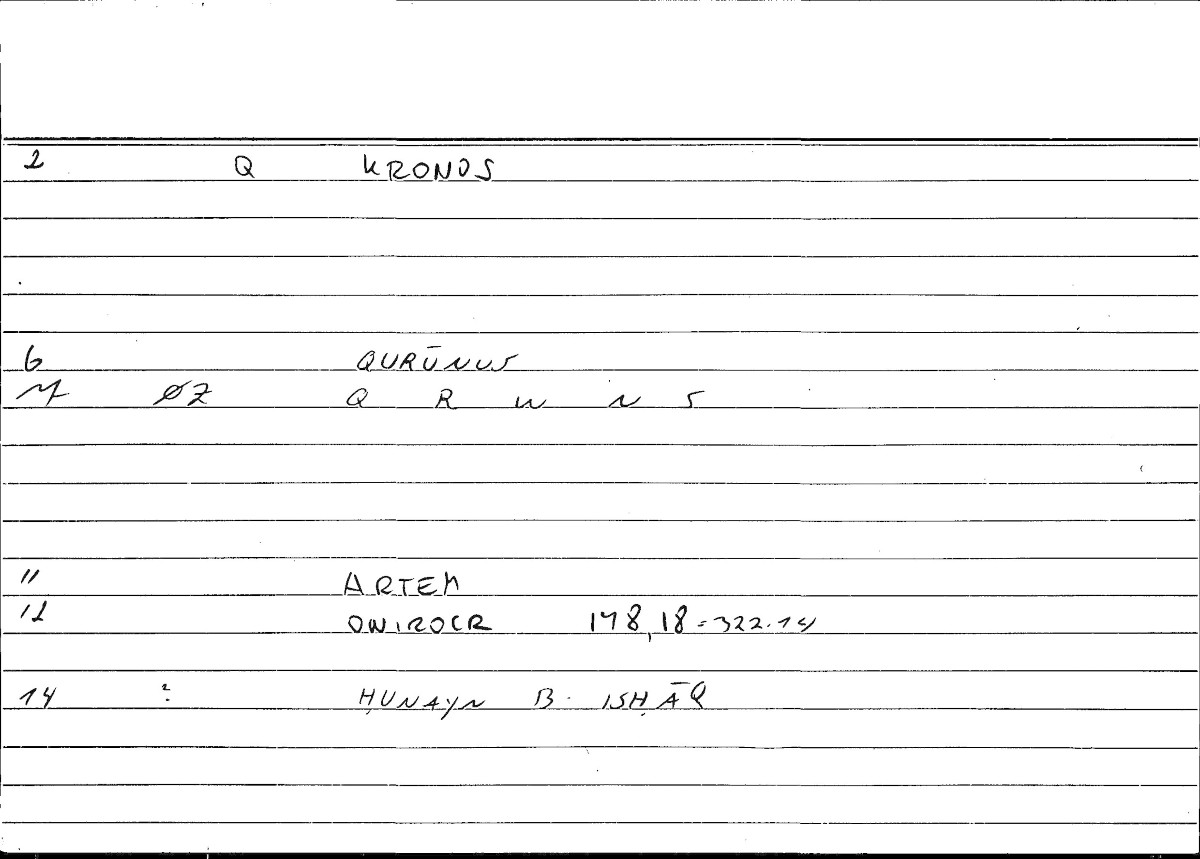 2 Q KRONOS
6 QURŪNUS
7 ØZ Q R W N S
11 ARTEM
12 ONIROCR 178,18 = 322.14
14 ? ḤUNAYN B. ISḤĀQ